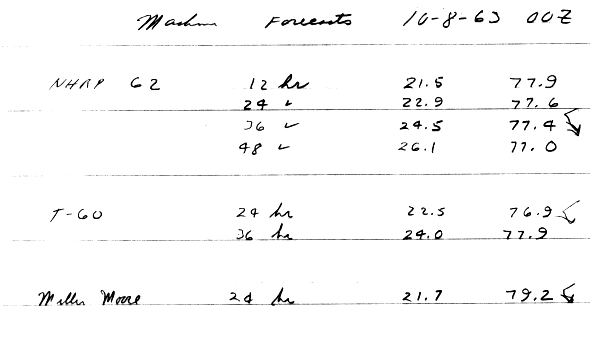 Machine Forecasts 10-8-63 00Z
NHRP 62 12 hr 21.5 77.9
24 " 22.9 77.6
36 " 24.5 77.4
48 " 26.1 77.0
T-60 24 hr 22.5 76.9
36 hr 24.0 77.9
Miller Moore 24 hr 21.7 79.2